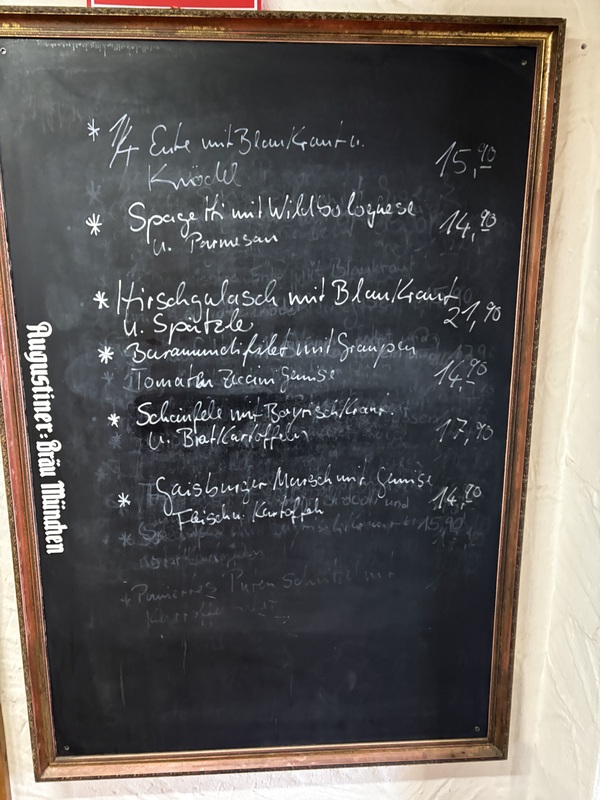 * 1/4 Ente mit Blaukraut u. 15,90
Knödel
* Spagetti mit Wildbolognese 14,90
u. Parmesan
* Hirschgulasch mit Blaukraut
u. Spätzle 21,90
* Baramundifilet mit Graupen
Tomaten Zucini Gemüse 14,90
* Schäufele mit Bayrischkraut.
u. Bratkartoffeln 17,90
* Gaisburger Marsch mit Gemüse
Fleisch u. Kartoffeln 14,90
* Paniertes Puten Schnitzel mit
Augustiner-Bräu München